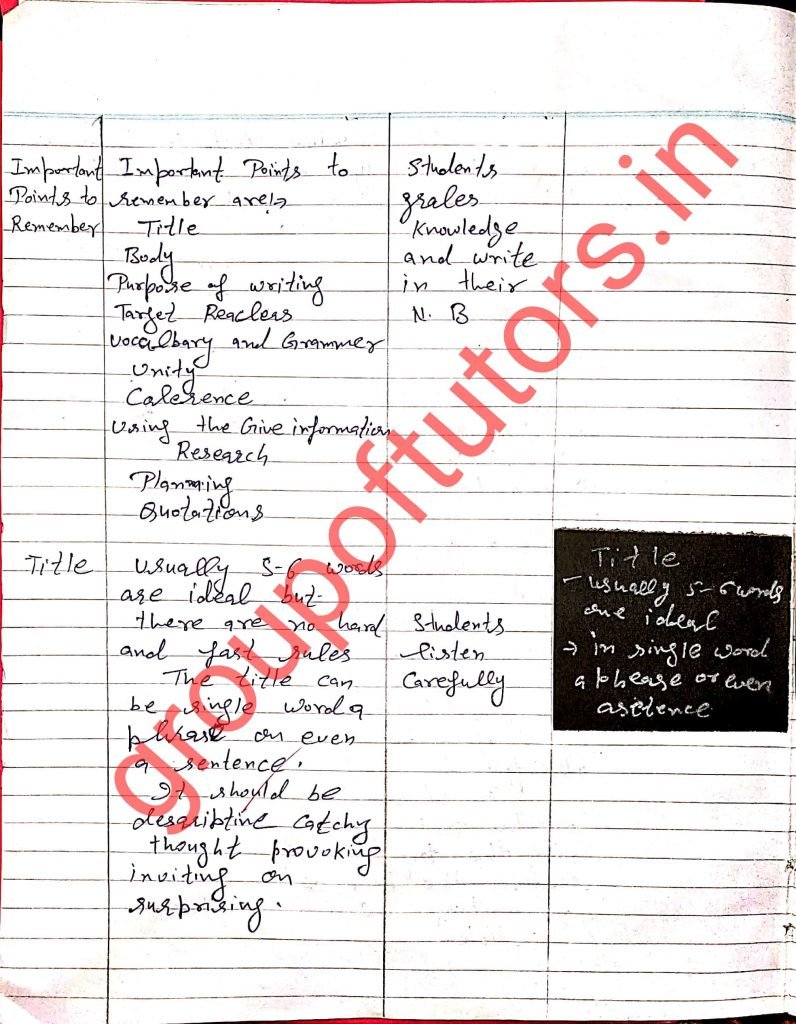 Important
Points to
Remember
Important Points to
remember are:→
Title
Body
Purpose of writing
Target Reacleas
vocalbary and Grammer
Unity
Coherence
Using the Give information
Research
Planning
Quotations
Students
grales
Knowledge
and write
in their
N. B
Title
Usually 5-6 words
are ideal but
there are no hard
and fast rules
The title can
be single word a
phrase or even
a sentence.
It should be
descriptive catchy
thought provoking
inviting or
surprising.
Students
listen
Carefully
Title
- usually 5-6 words
are ideal
→ in single word
a phease or even
asetence
groupoftutors.in